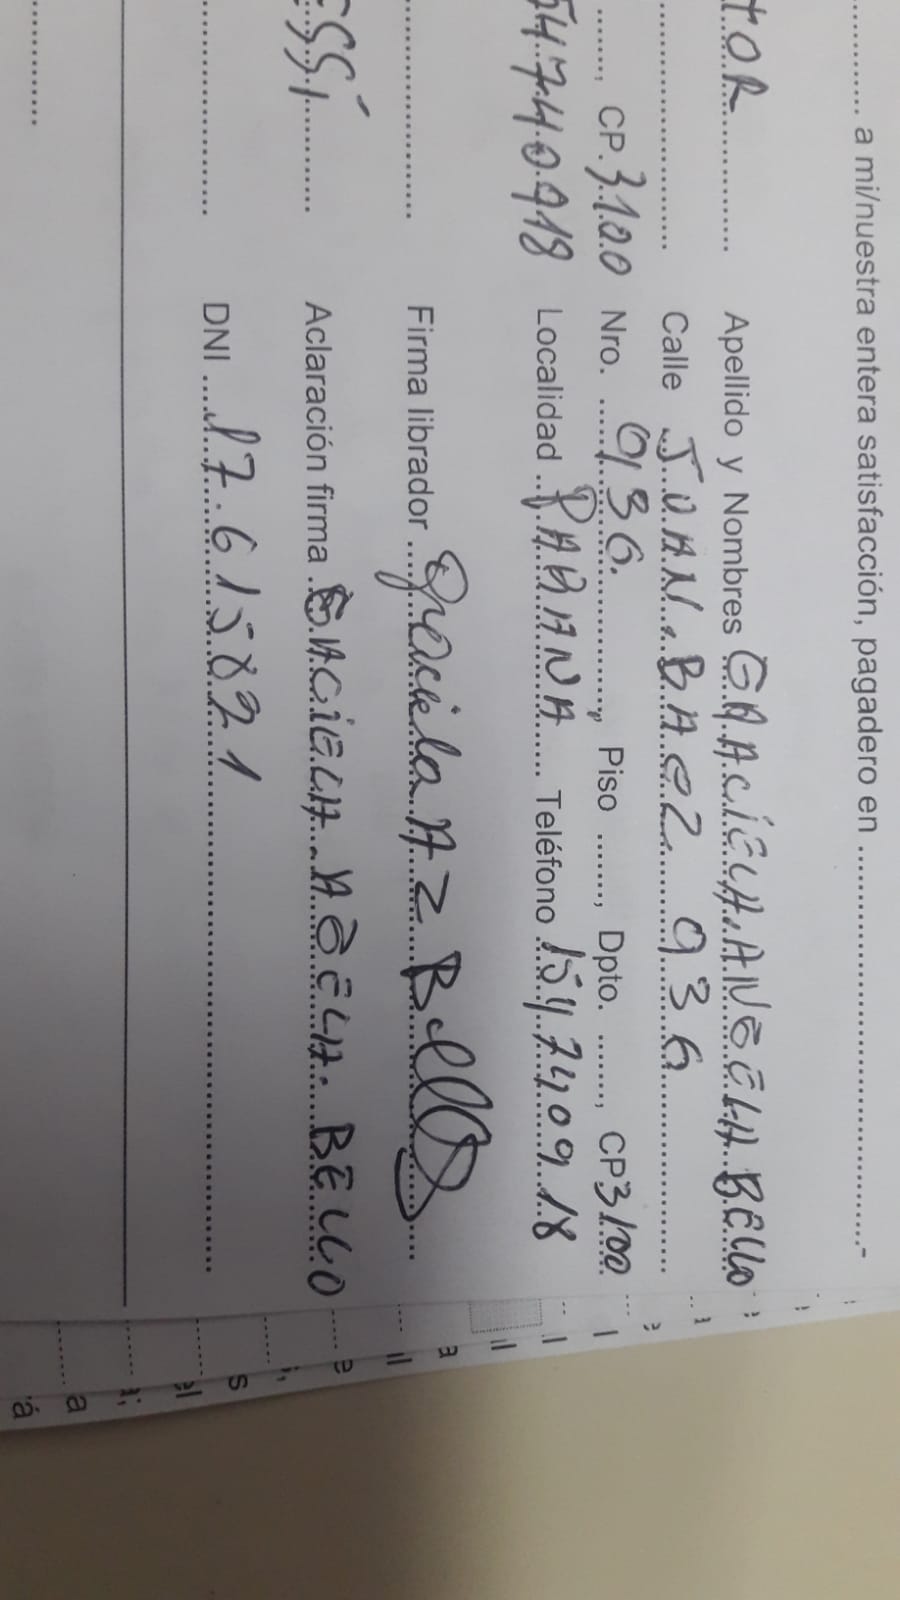 ............ a mi/nuestra entera satisfacción, pagadero en ............-
TOR............ Apellido y Nombres GRACiELA ANGELA BELLO
............ Calle JUAN BAEZ 936............
......, CP. 3100 Nro. ...... 936............, Piso ......, Dpto. ......, CP 3100
54740918 Localidad .. PARANA...... Teléfono 154740918
............ Firma librador .... Graciela A z Bello....
ESSi......... Aclaración firma .. GRACiELA ANGELA BELLO
............ DNI .... 17.615821............